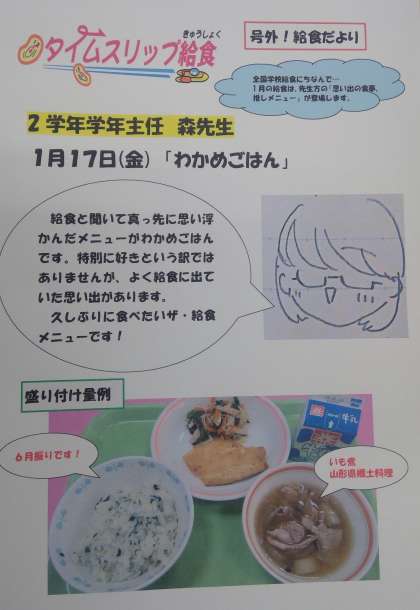 きゅうしょく
タイムスリップ給食
号外！給食だより
全国学校給食にちなんで…
1月の給食は、先生方の「思い出の食事、
推しメニュー」が登場します。
2学年学年主任 森先生
1月17日(金)「わかめごはん」
給食と聞いて真っ先に思い浮
かんだメニューがわかめごはん
です。特別に好きという訳では
ありませんが、よく給食に出て
いた思い出があります。
久しぶりに食べたいザ・給食
メニューです！
盛り付け量例
6月振りです！
いも煮
山形県郷土料理
牛乳